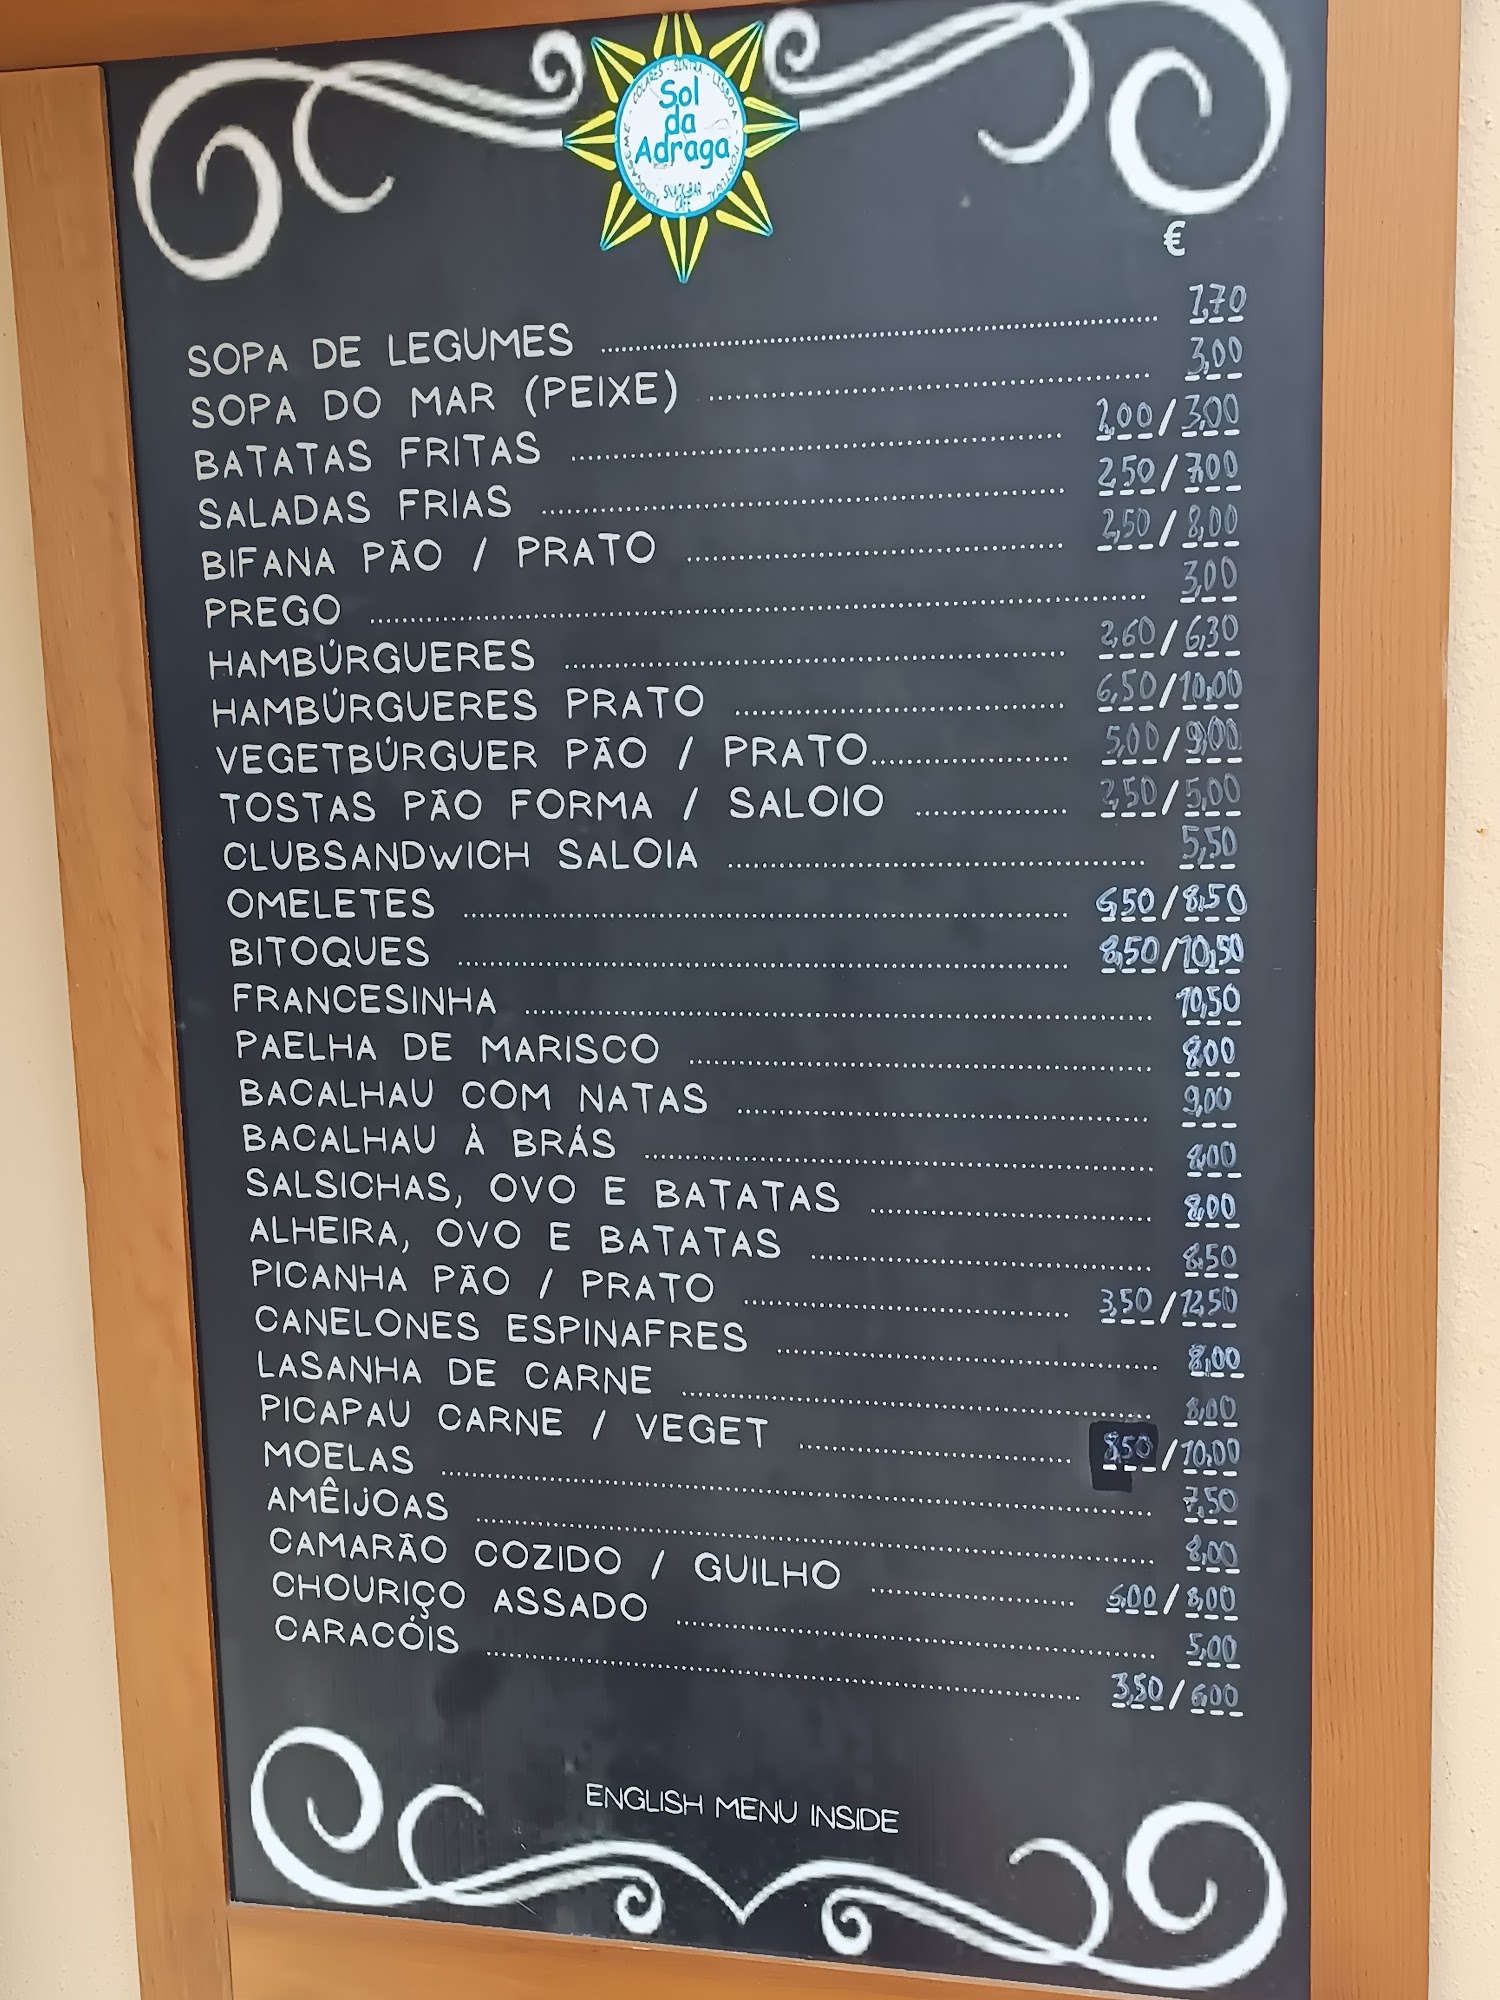 ALMOÇAGEME - COLARES - SINTRA - LISBOA - PORTUGAL
Sol
da
Adraga
SNACK-BAR
CAFÉ
€
SOPA DE LEGUMES 1,70
SOPA DO MAR (PEIXE) 3,00
BATATAS FRITAS 2,00/3,00
SALADAS FRIAS 2,50/7,00
BIFANA PÃO / PRATO 2,50/8,00
PREGO 3,00
HAMBÚRGUERES 2,60/6,30
HAMBÚRGUERES PRATO 6,50/10,00
VEGETBÚRGUER PÃO / PRATO 5,00/9,00
TOSTAS PÃO FORMA / SALOIO 2,50/5,00
CLUBSANDWICH SALOIA 5,50
OMELETES 6,50/8,50
BITOQUES 8,50/10,50
FRANCESINHA 10,50
PAELHA DE MARISCO 8,00
BACALHAU COM NATAS 9,00
BACALHAU À BRÁS 8,00
SALSICHAS, OVO E BATATAS 8,00
ALHEIRA, OVO E BATATAS 8,50
PICANHA PÃO / PRATO 3,50/12,50
CANELONES ESPINAFRES 8,00
LASANHA DE CARNE 8,00
PICAPAU CARNE / VEGET 8,50/10,00
MOELAS 7,50
AMÊIJOAS 8,00
CAMARÃO COZIDO / GUILHO 6,00/8,00
CHOURIÇO ASSADO 5,00
CARACÓIS 3,50/6,00
ENGLISH MENU INSIDE